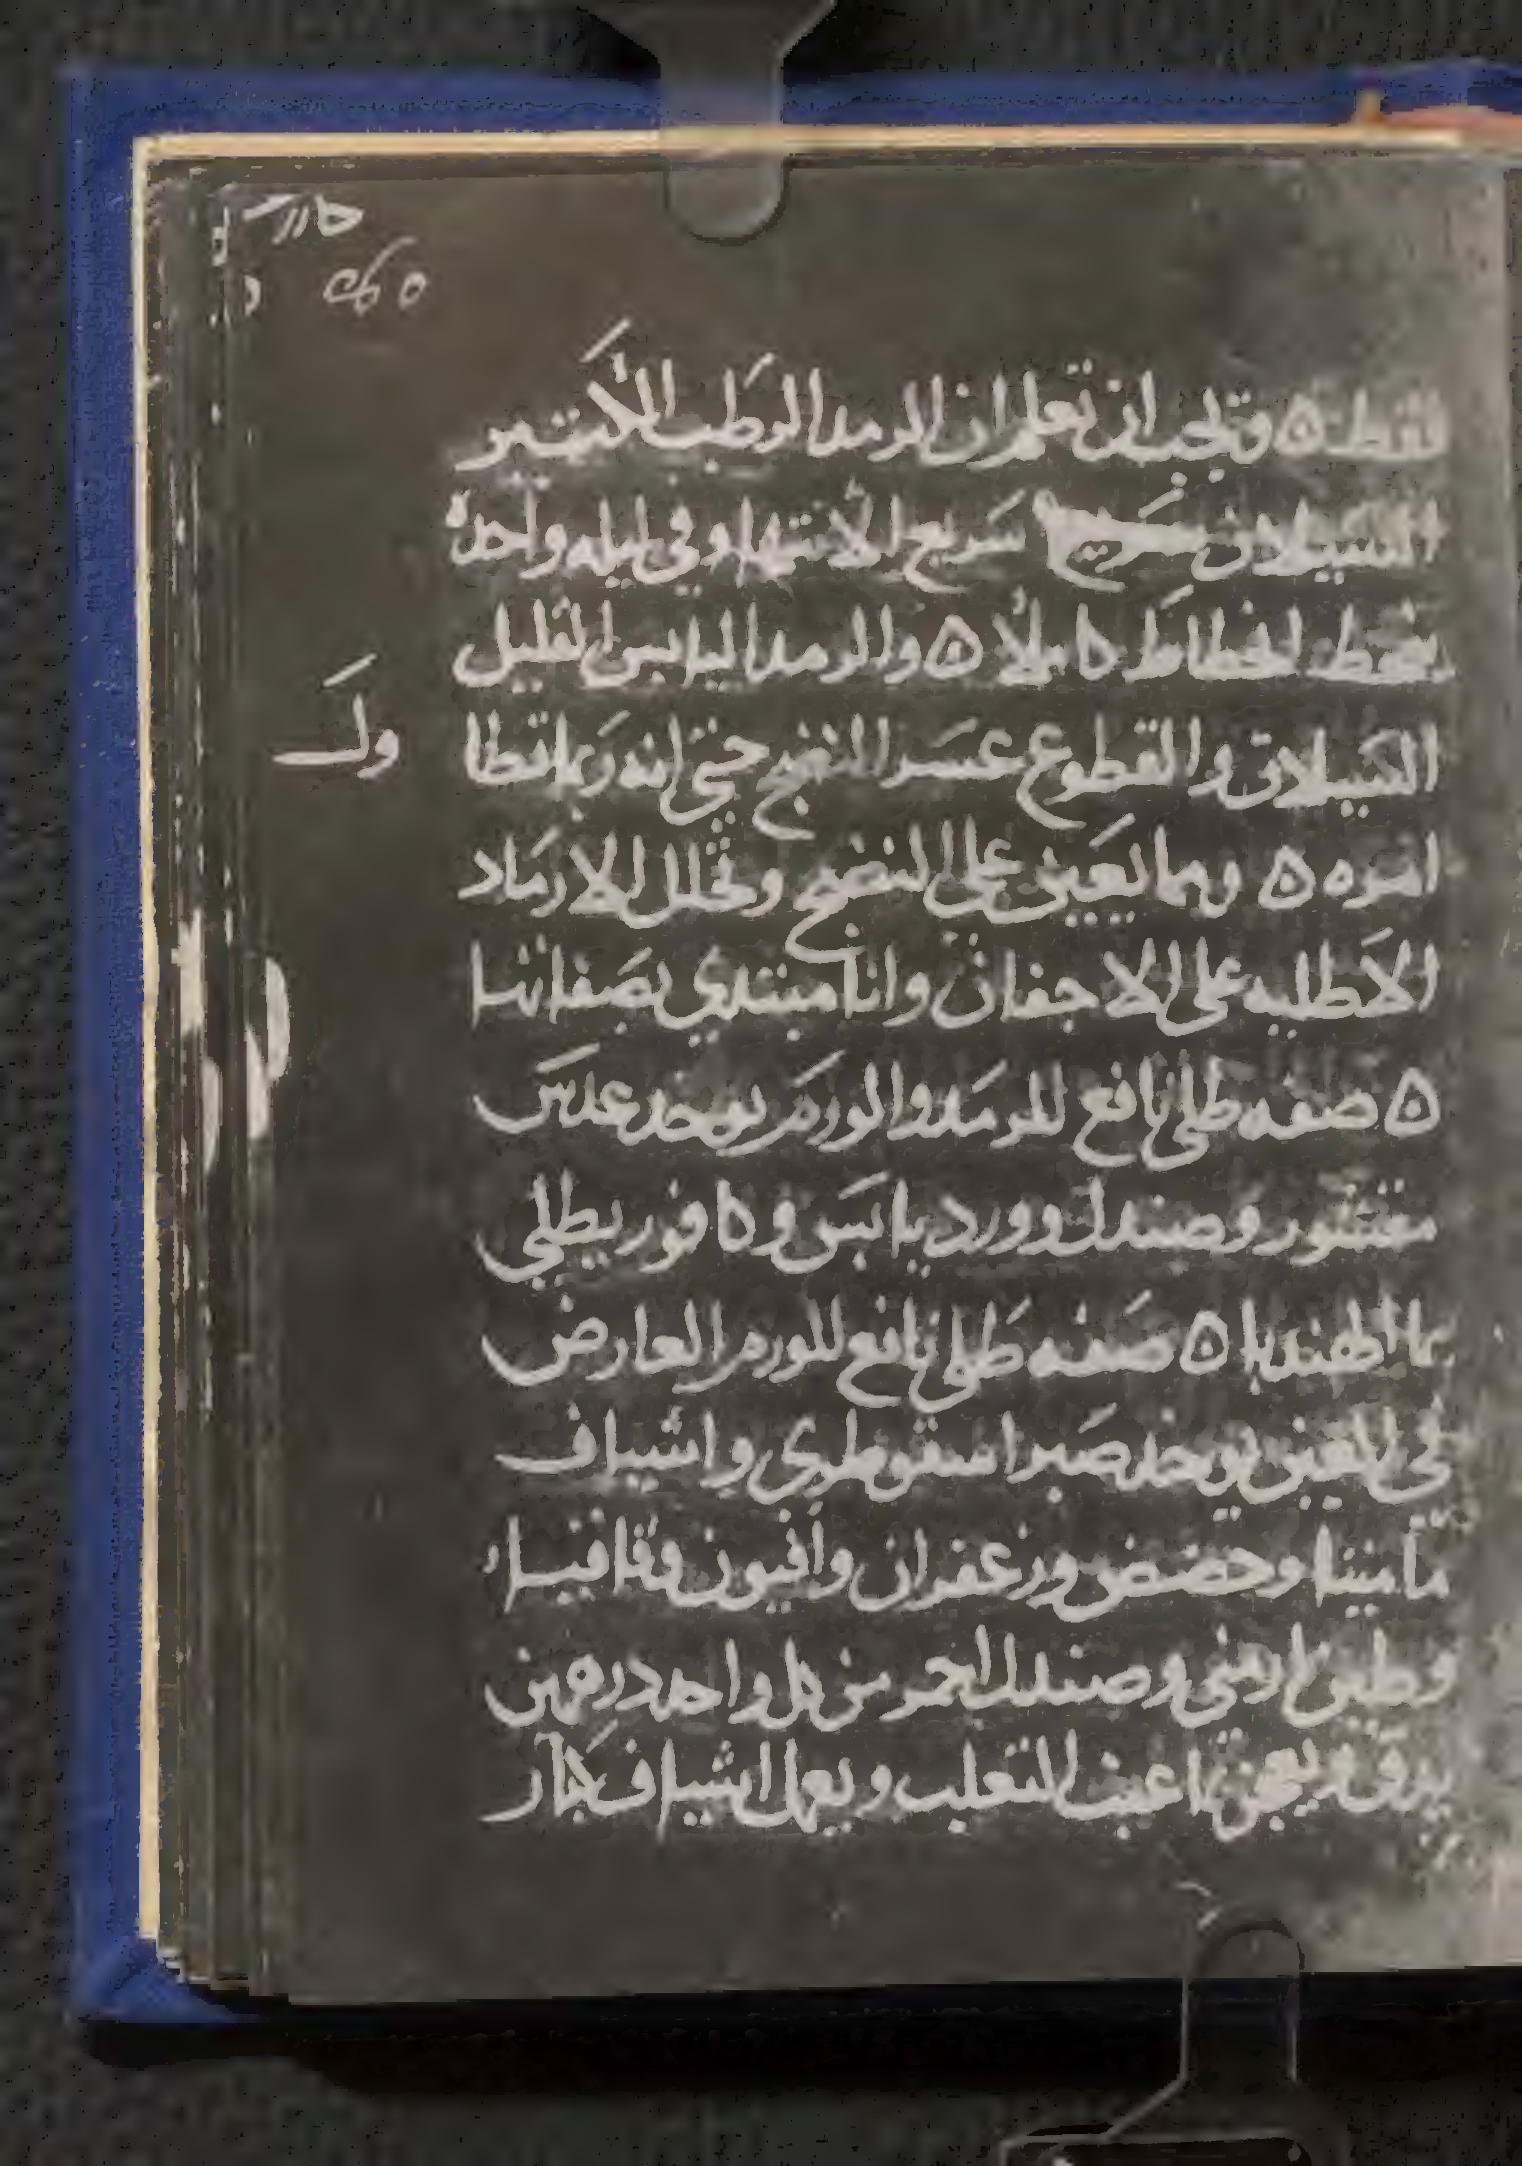 فقط ٥ ويجب ان تعلم ان الرمد الرطب الكثير
السيلان سريع الانتهاء وفي ليله واحده
ينحط انحطاطا كاملا ٥ والرمد اليابس القليل
السيلان والقطوع عسر النضج حتى انه ربما تطا
ول
امره ٥ ومما يعين على النضج وتحلل الارماد
الاطليه على الاجفان وانا مبتدي بصفاتها
٥ صفه طلى نافع للرمد والورم يوخد عدس
مقشور وصندل وورد يابس وكافور يطلى
بما الهندبا ٥ صفه طلى نافع للورم العارض
في العين يوخد صبر اسقوطري واشياف
ماميثا وحضض وزعفران وافيون وقاقيا
وطين ارمني وصندل احمر من كل واحد درهمين
يدق ويعجن بما عنب الثعلب ويعمل اشياف كبار